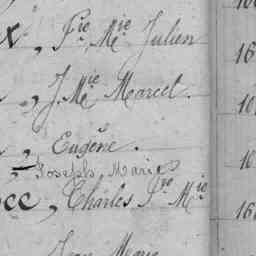 x, Fie Mie Julien
, J. Mie Marcel.
, Eugène.
Joseph Marie
cc, Charles Fre Mie
Jean Marie